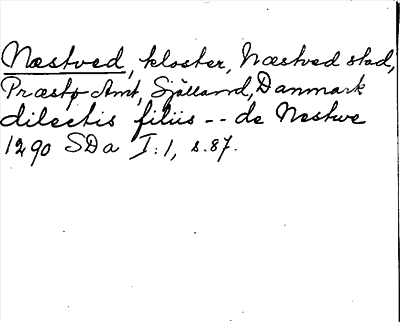 Næstved, kloster, Næstved stad,
Præstø Amt, Själland, Danmark
dilectis filiis -- de Nestwe
1290 SDa I:1, s.87.